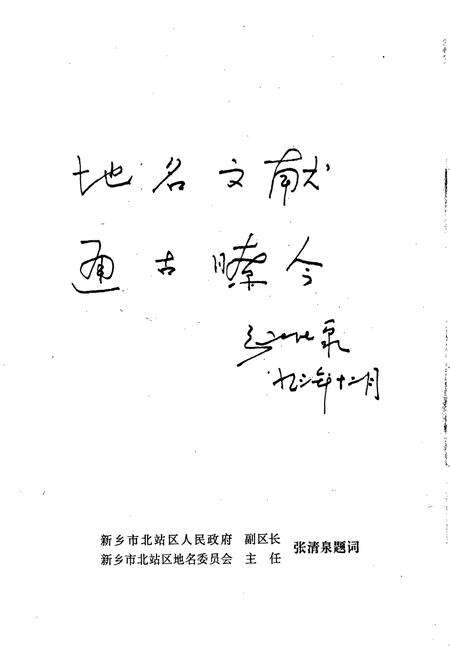 地名文献
通古瞭今
张清泉
九三年十二月
新乡市北站区人民政府 副区长
新乡市北站区地名委员会 主任 张清泉题词